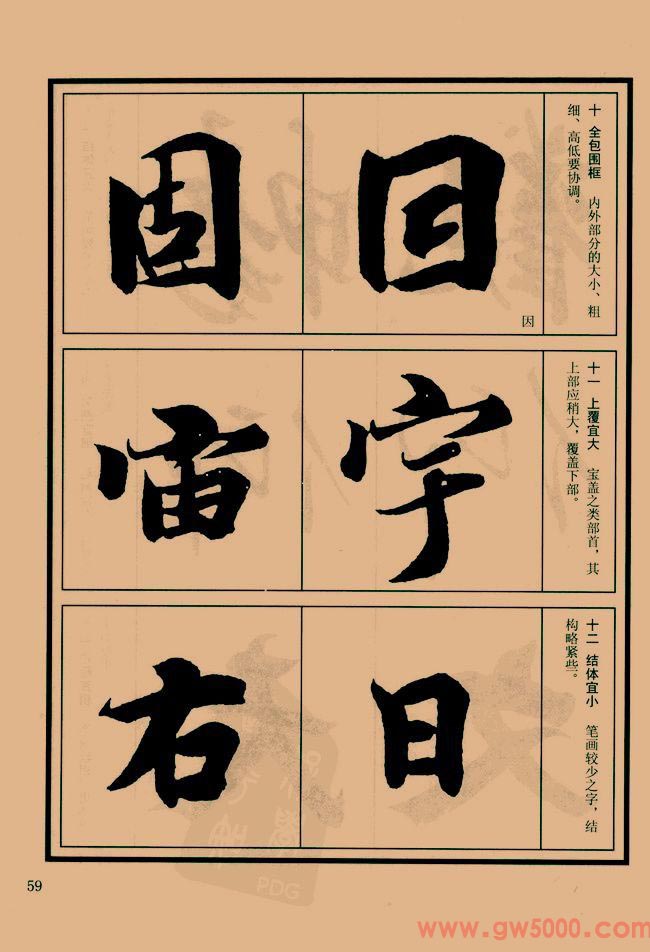 十 全包围框 内外部分的大小、粗
细、高低要协调。
囙
因
固
十一 上覆宜大 宝盖之类部首，其
上部应稍大，覆盖下部。
宇
宙
十二 结体宜小 笔画较少之字，结
构略紧些。
日
右
PDG
59
www.gw5000.com